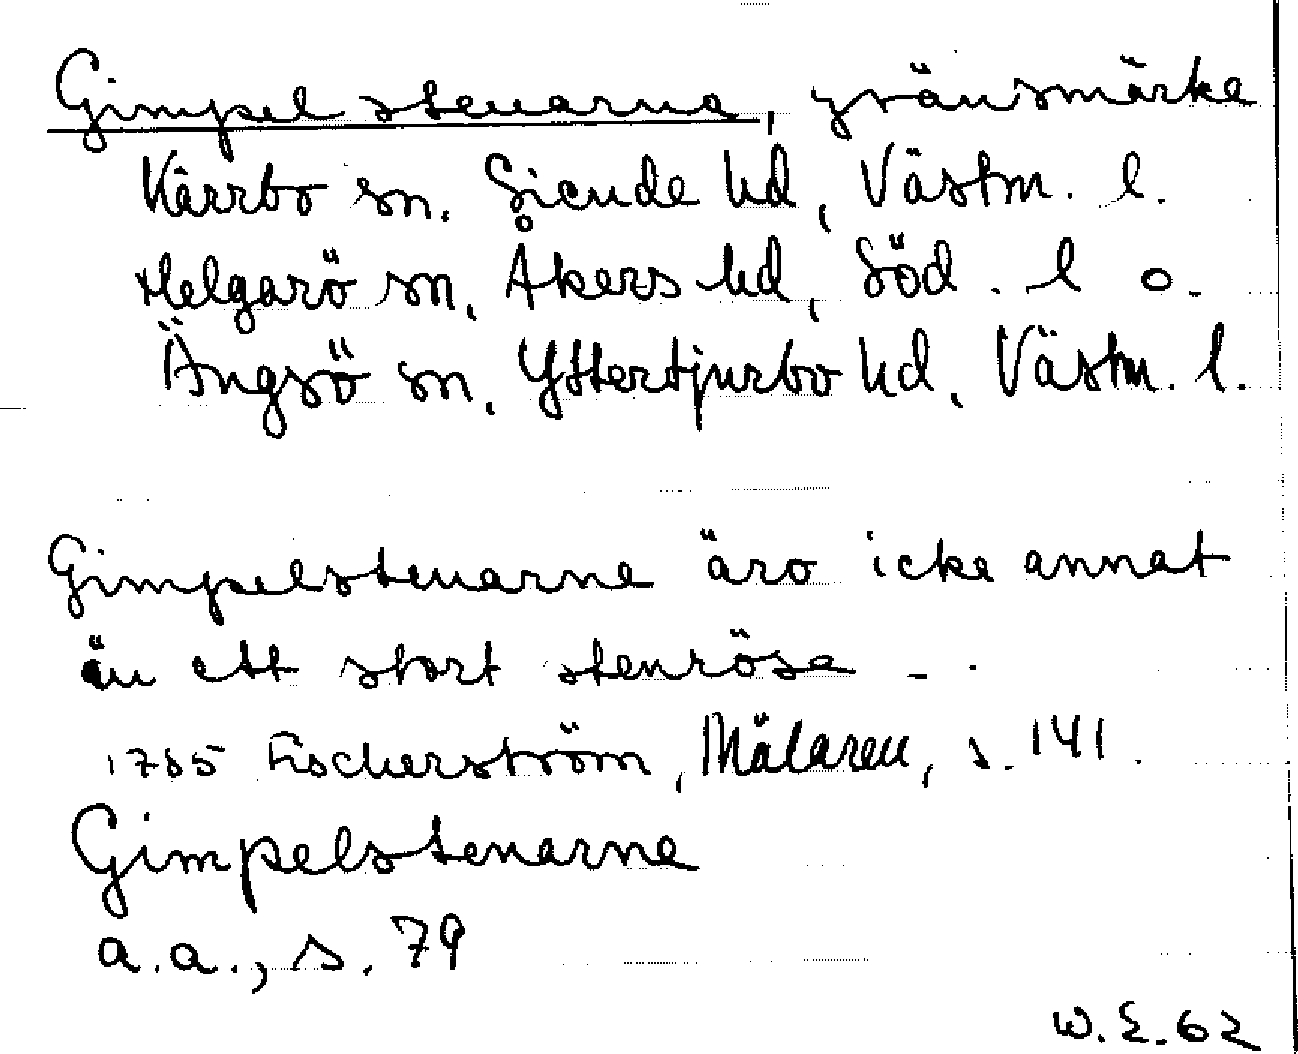 Gimpelstenarna, gränsmärke
Kärrbo sn, Siende hd, Västm. l.
Helgarö sn, Åkers hd, Söd. l o.
Ängsö sn, Yttertjurbo hd, Västm. l.
Gimpelstenarne äro icke annat
än ett stort stenröse - .
1785 Fischerström, Mälaren, s. 141.
Gimpelstenarne
a.a., s. 79
W.E. 62